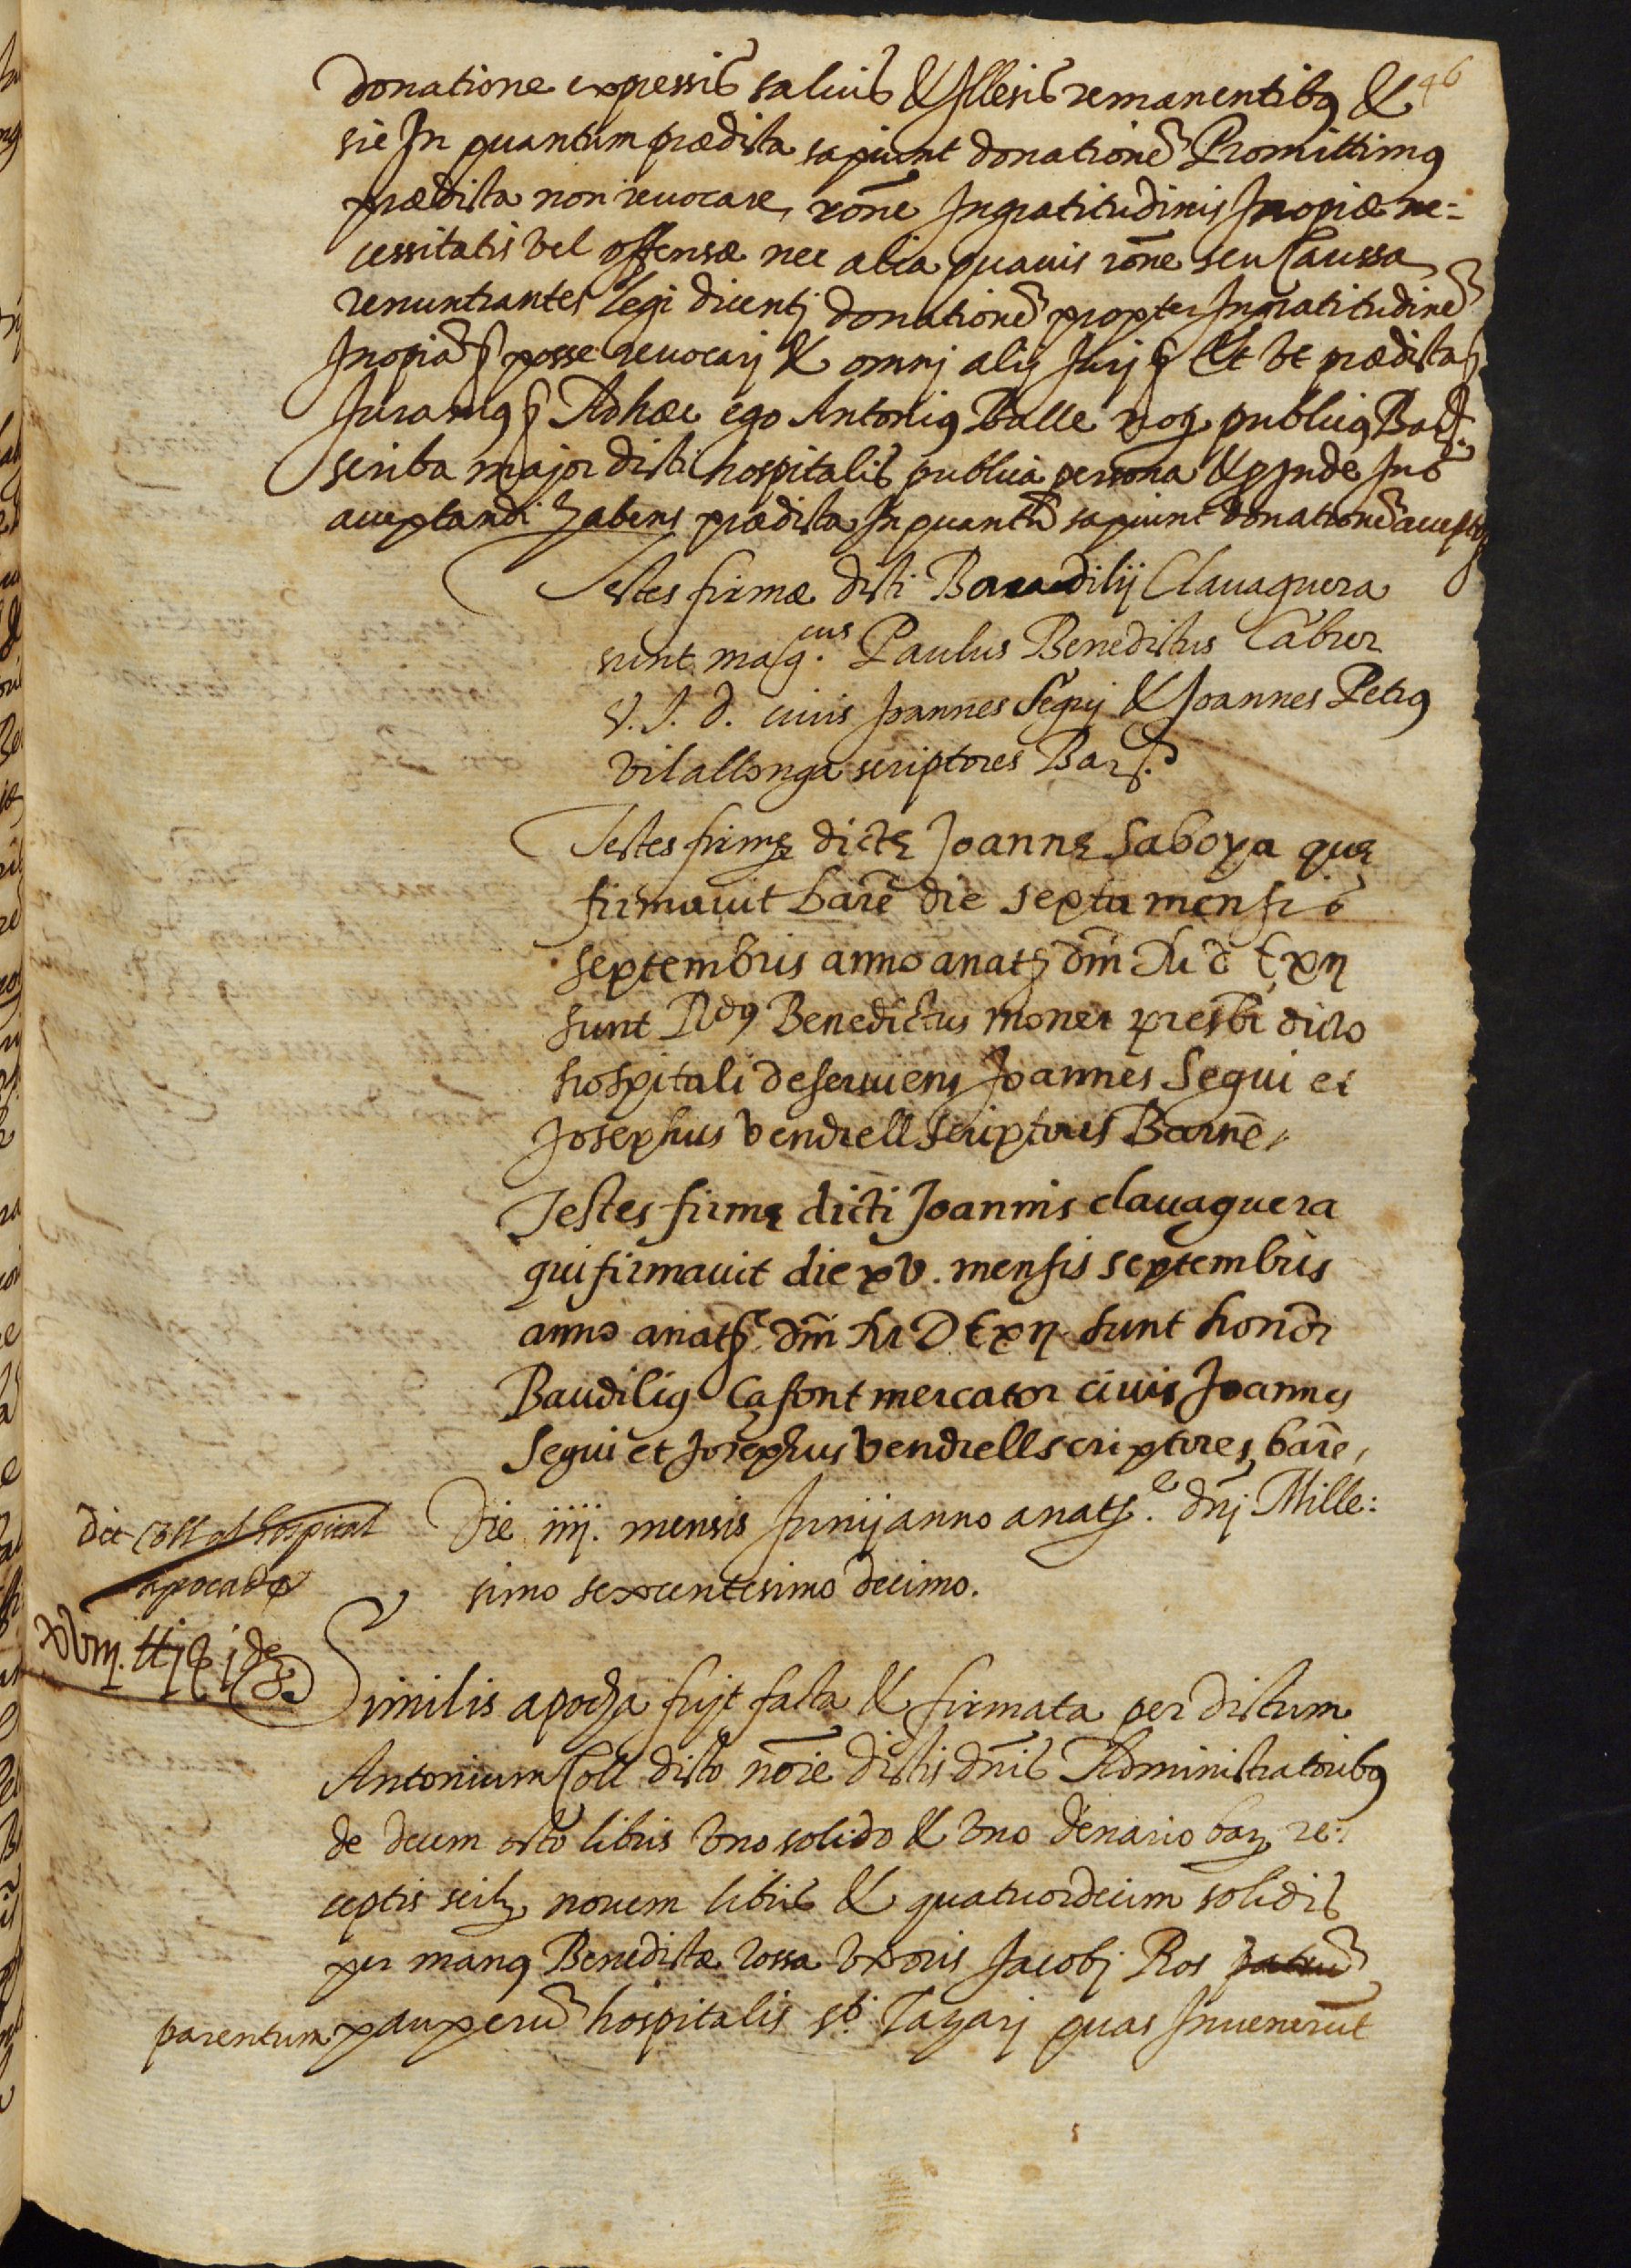 46
donatione expressis saluis & Illesis remanentibus &
sic In quantum prædicta sapiunt donationẽ Promittimus
prædicta non reuocare, rõne Ingratitudinis Inopiæ ne=
cessitatis vel offensæ nec alia quauis rõne seu Caussa
renuntiantes legi dicentj donationẽ propter Ingratitudinẽ
Inopiã & posse reuocarj & omnj alij Jurj & Et vt prædicta &
Juramus & Ad hæc ego Antonius Batlle not publicus Bar.
scriba major dicti hospitalis publica persona & p Inde Ius
acceptandi habens prædicta In quantũ sapiunt donationẽ accepto
Testes firmæ dicti Baudilij Clauaguera
sunt mag.cus Paulus Benedictus Cabrer
V. J. d. ciuis Joannes Segrij & Joannes Petrus
Vilallonga scriptores Bar.
Testes firmę dictę Joannę Saboya quę
firmauit barẽ die septa mensis
septembris anno anatᵉ dñi M d C xᵰ
sunt Rdus Benedictus moner presbr dicto
hospitali deseruiens Joannes Segui et
Josephus vendrell scriptores Barnẽ,
Testes firmę dicti Joannis clauaguera
qui firmauit die xv. mensis septembris
anno anatᵉ dñi M D C xᵰ sunt honor
Baudilius Casont mercator ciuis Joannes
Segui et Josephus vendrell scriptores, barẽ,
Die iiij. mensis Junij anno anat.e dnj Mille:
simo sexcentesimo decimo.
die Coll al hospital
apoca de
xviij. ll j ẜ j de
Similis apocha fujt facta & firmata per dictum
Antonium Coll dicto noĩe dictis dñis Administratoribus
de decem octo libris vno solido & vno denario bar re:
ceptis scilz nouem libris & quatuordecim solidis
per manus Benedictæ Rossa vxoris Jacobj Ros patruũ
parentum pauperũ hospitalis sti. Lazarj quas Inuenerũt